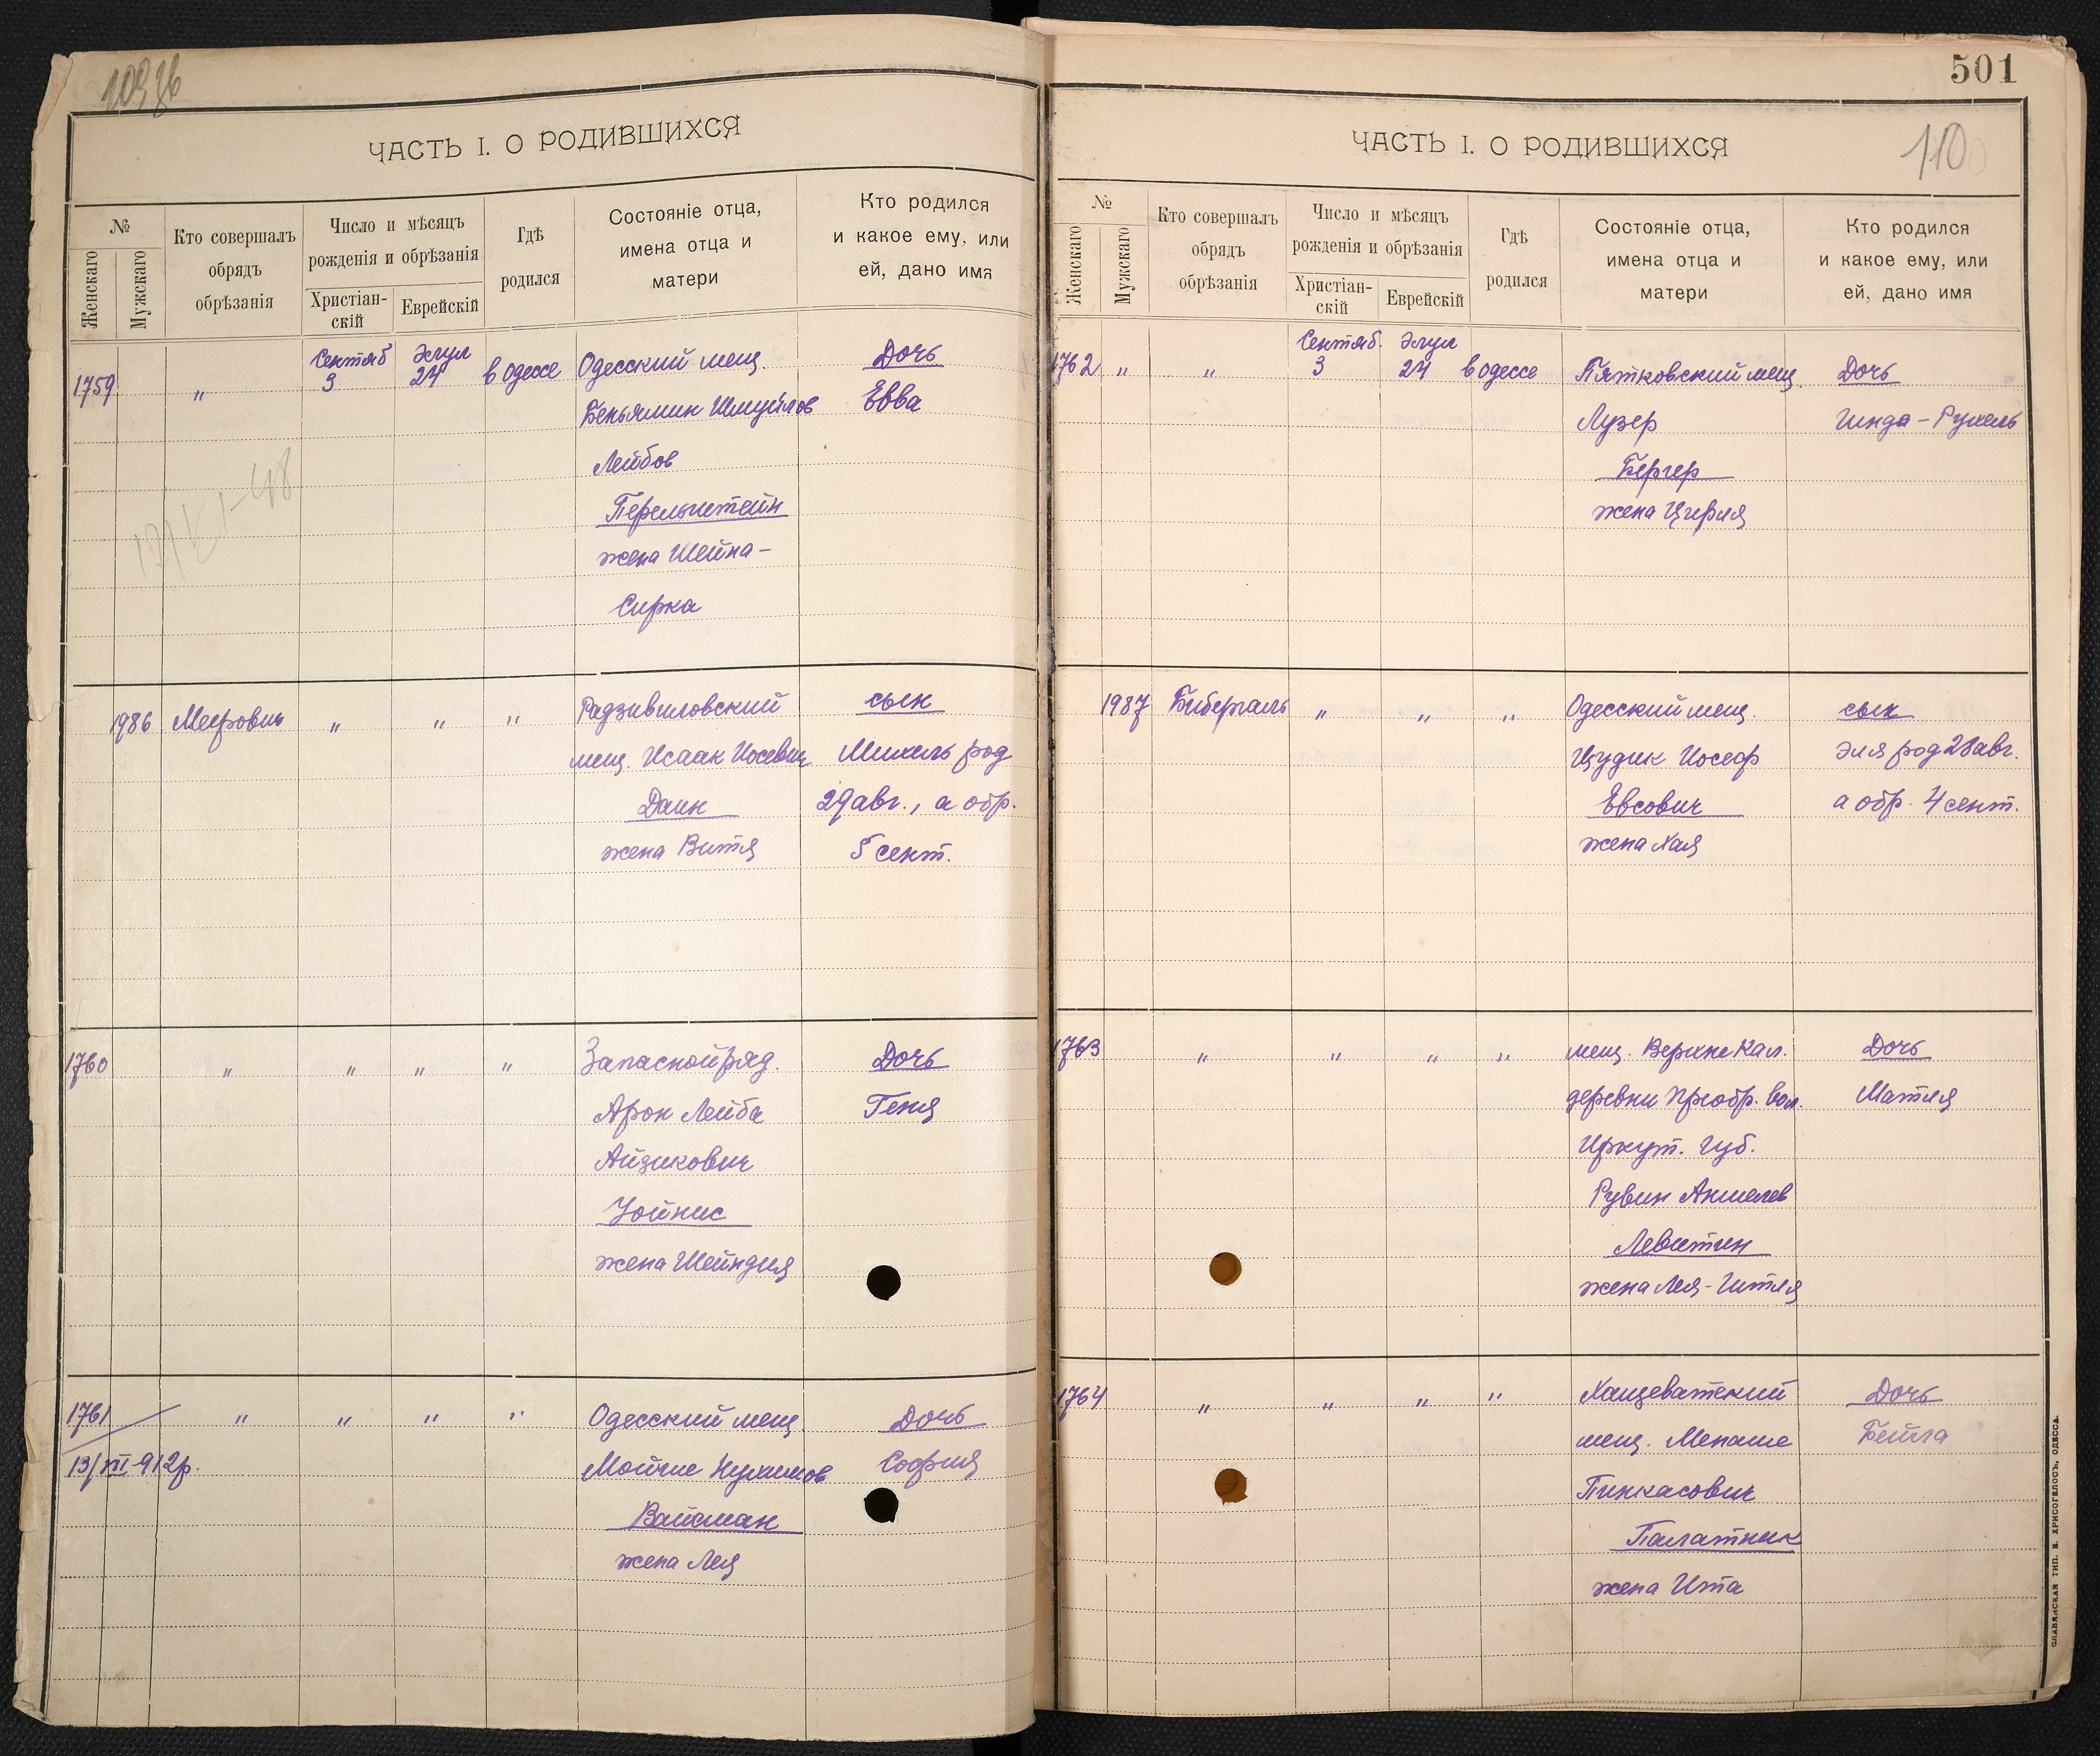 501
ЧАСТЬ I. О РОДИВШИХСЯ
№
Женскаго
Мужскаго
Кто совершалъ
обрядъ
обрѣзанія
Число и мѣсяцъ
рожденія и обрѣзанія
Христіан-
скій
Еврейскій
Гдѣ
родился
Состояніе отца,
имена отца и
матери
Кто родился
и какое ему, или
ей, дано имя
1759 " Сентяб 3 Элул 24 в Одессе Одесский мещ. Дочь
Беньямин Шмуйлов Евва
Лейбов
Перельштейн
жена Шейна-
Сирка
1986 Меерович " " " Радзивиловский сын
мещ. Исаак Иосевич Михель род
Даин 29 авг., а обр.
жена Витя 5 сент.
1760 " " " " Запасной ряд. Дочь
Арон Лейба Геня
Айзикович
Уойнис
жена Шейндля
1761 " " " " Одесский мещ. Дочь
13/XII-912р. Мойше Нухимов София
Вайсман
жена Лея
ЧАСТЬ I. О РОДИВШИХСЯ
110
№
Женскаго
Мужскаго
Кто совершалъ
обрядъ
обрѣзанія
Число и мѣсяцъ
рожденія и обрѣзанія
Христіан-
скій
Еврейскій
Гдѣ
родился
Состояніе отца,
имена отца и
матери
Кто родился
и какое ему, или
ей, дано имя
1762 " " Сентяб. 3 Элул 24 в Одессе Пятковский мещ. Дочь
Лузер Гинда-Рухель
Бергер
жена Цирля
1987 Бибергаль " " " Одесский мещ. сын
Цудик Иосеф Эля род 28 авг.
Евсович а обр. 4 сент.
жена Хая
1763 " " " " мещ. Верхне Кал. Дочь
деревни Преобр. вол. Матля
Иркут. Губ.
Рувин Аншелев
Левитин
жена Лея-Гитля
1764 " " " " Хащеватский Дочь
мещ. Менаше Бейла
Пинкасович
Палатник
жена Ита
СЛАВЯНСКАЯ ТИП. Н. ХРИСОГЕЛОСЪ, ОДЕССА.